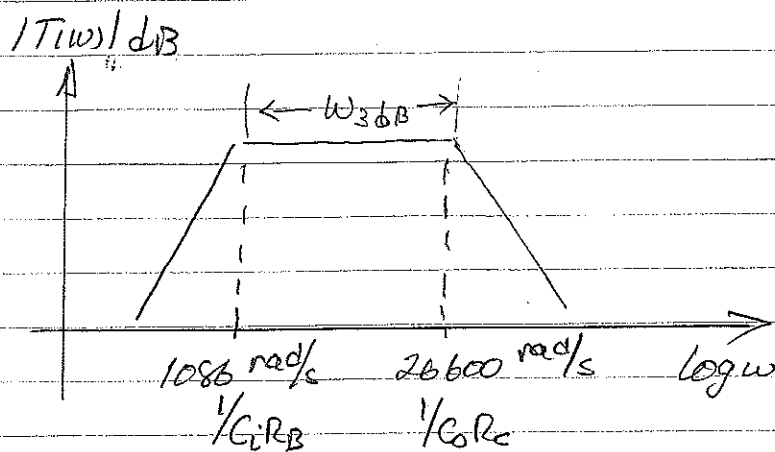 |T(ω)| dB
ω3dB
1086 rad/s 26600 rad/s log ω
1/CiRB 1/CoRc